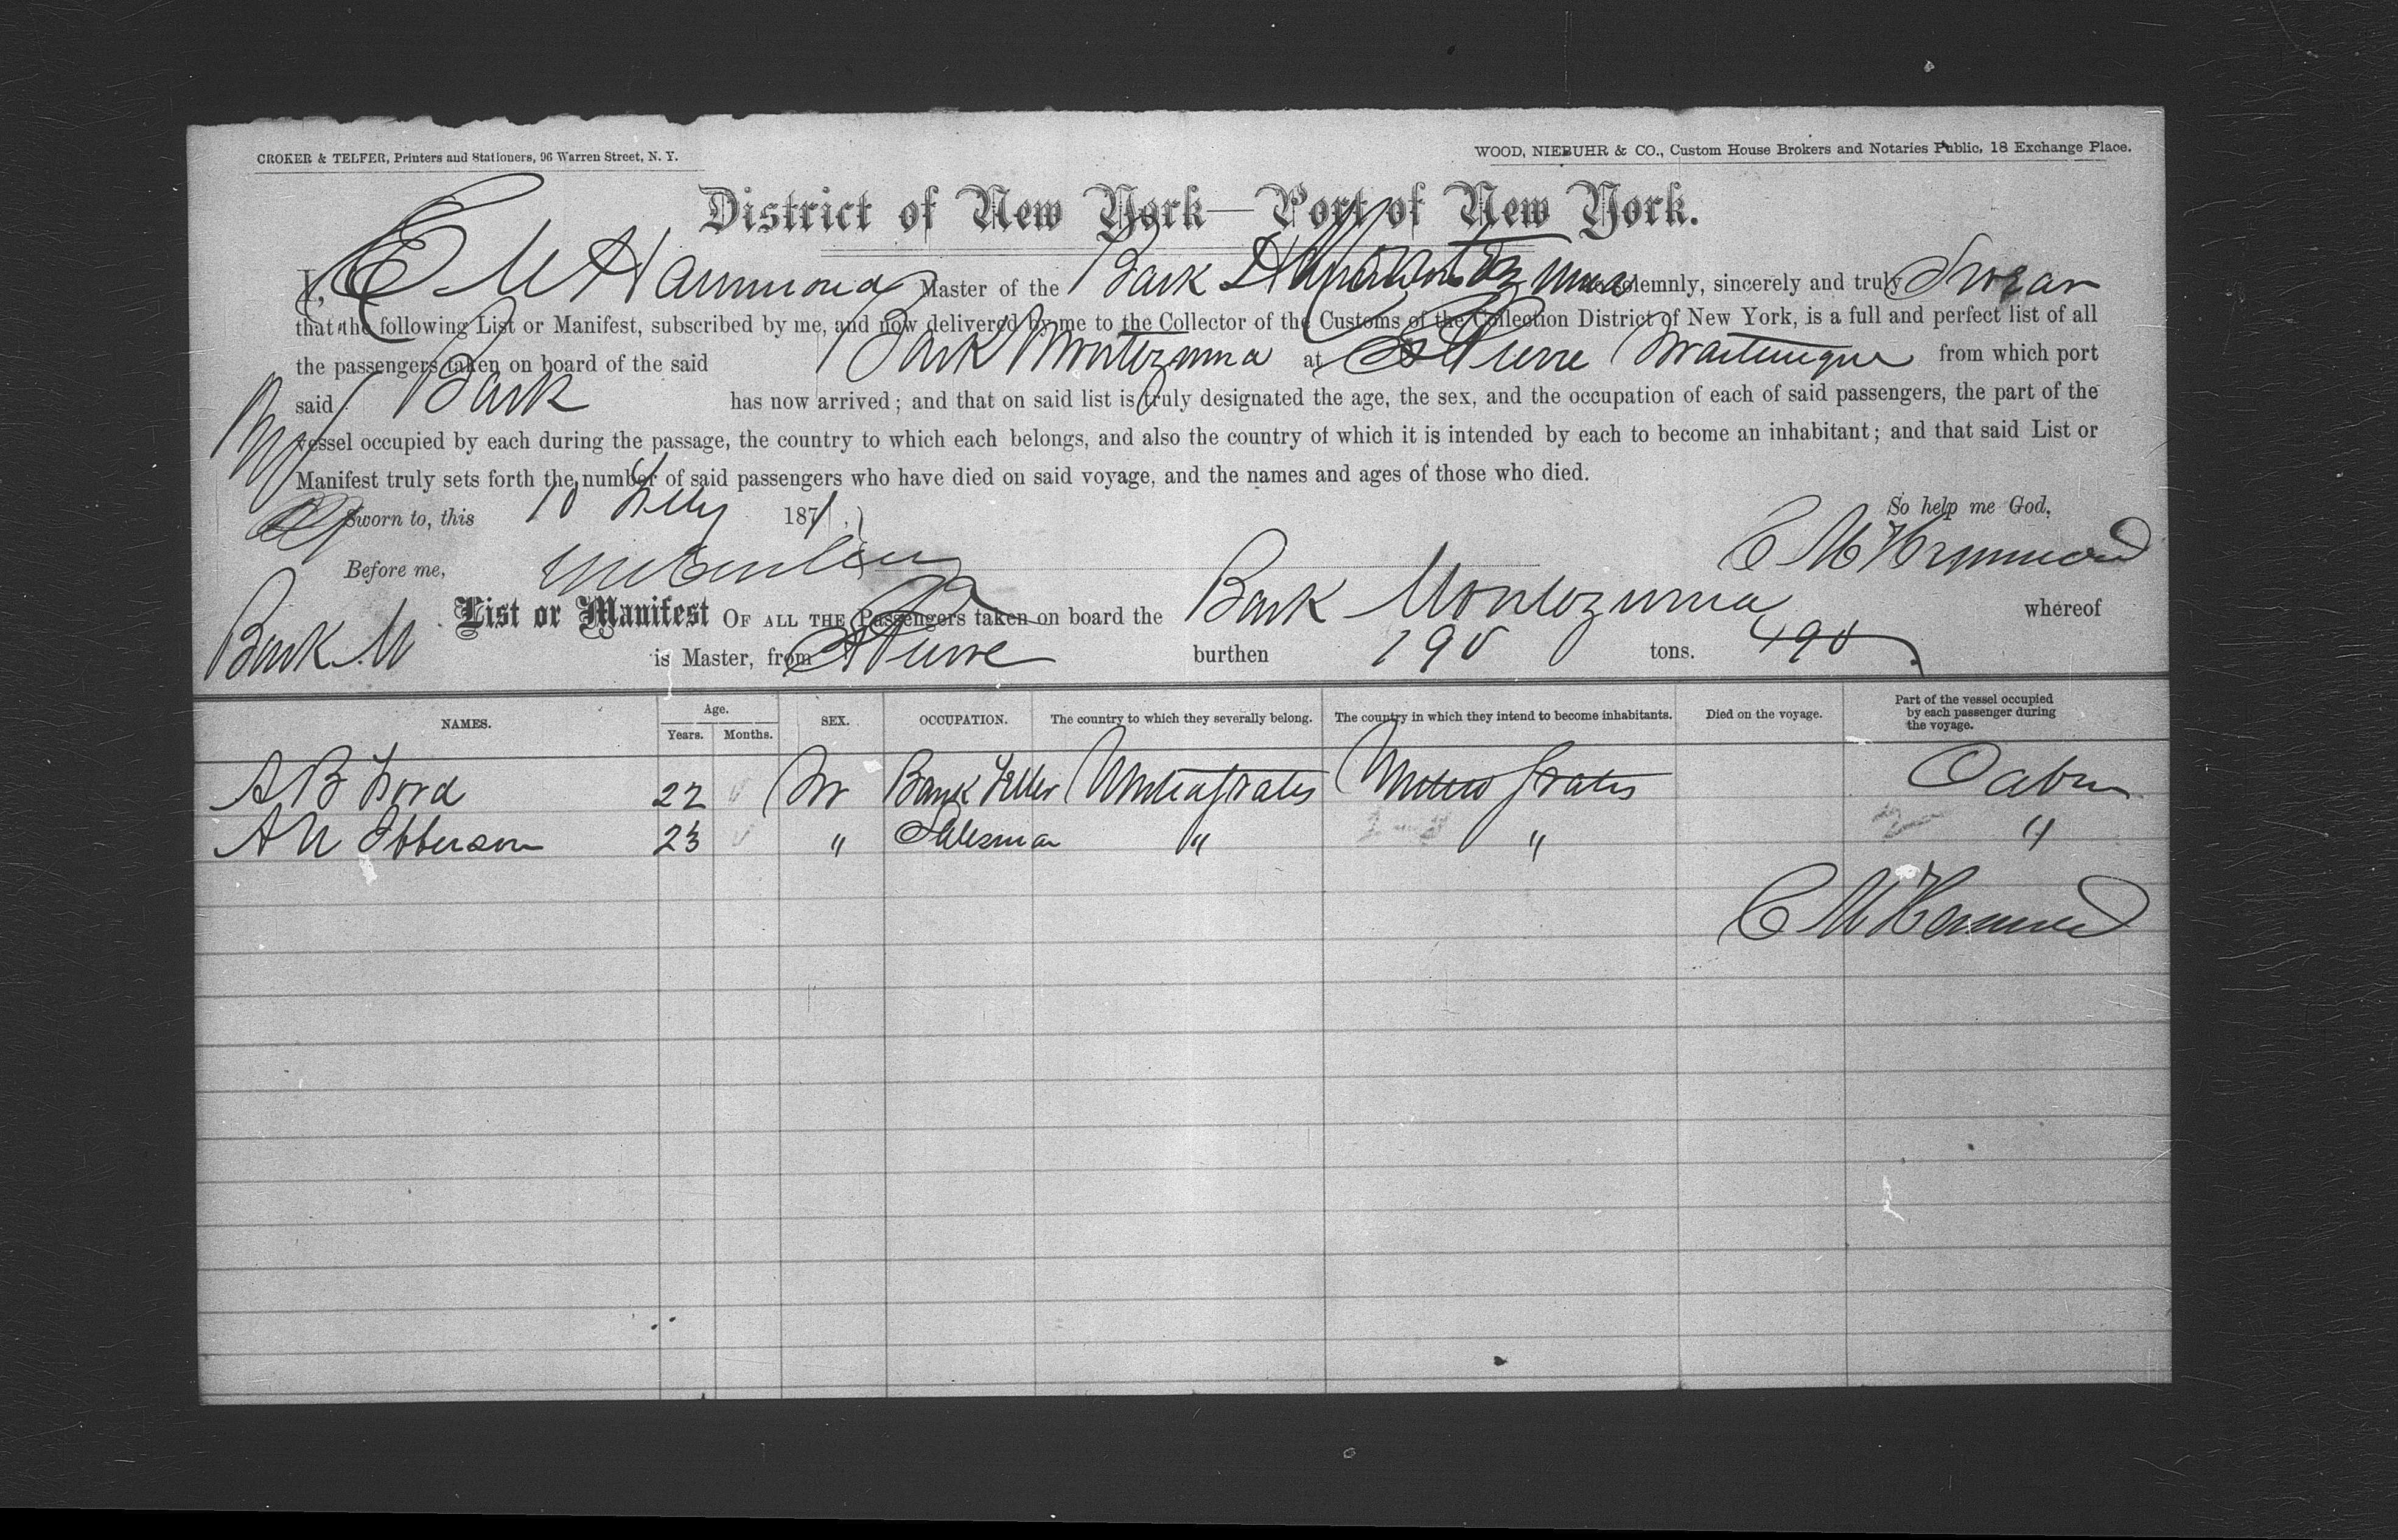 CROKER & TELFER, Printers and Stationers, 96 Warren Street, N. Y.
WOOD, NIEBUHR & CO., Custom House Brokers and Notaries Public, 18 Exchange Place.
District of New York—Port of New York.
I, E M Hammond Master of the Bark Montezuma do solemnly, sincerely and truly Swear
that the following List or Manifest, subscribed by me, and now delivered by me to the Collector of the Customs of the Collection District of New York, is a full and perfect list of all
the passengers taken on board of the said Bark Montezuma at St Pierre Martinique from which port
said Bark has now arrived; and that on said list is truly designated the age, the sex, and the occupation of each of said passengers, the part of the
vessel occupied by each during the passage, the country to which each belongs, and also the country of which it is intended by each to become an inhabitant; and that said List or
Manifest truly sets forth the number of said passengers who have died on said voyage, and the names and ages of those who died.
Sworn to, this 10 187
So help me God,
Before me,
E M Hammond
List or Manifest OF ALL THE Passengers taken on board the Bark Montezuma whereof
Bark M is Master, from St Pierre burthen 490 tons. 490
NAMES. Age. Years. Months. SEX. OCCUPATION. The country to which they severally belong. The country in which they intend to become inhabitants. Died on the voyage. Part of the vessel occupied by each passenger during the voyage.
A B Ford 22 M Bank Teller United States United States Cabin
A N 23 " Salesman " " "
E M Hammond